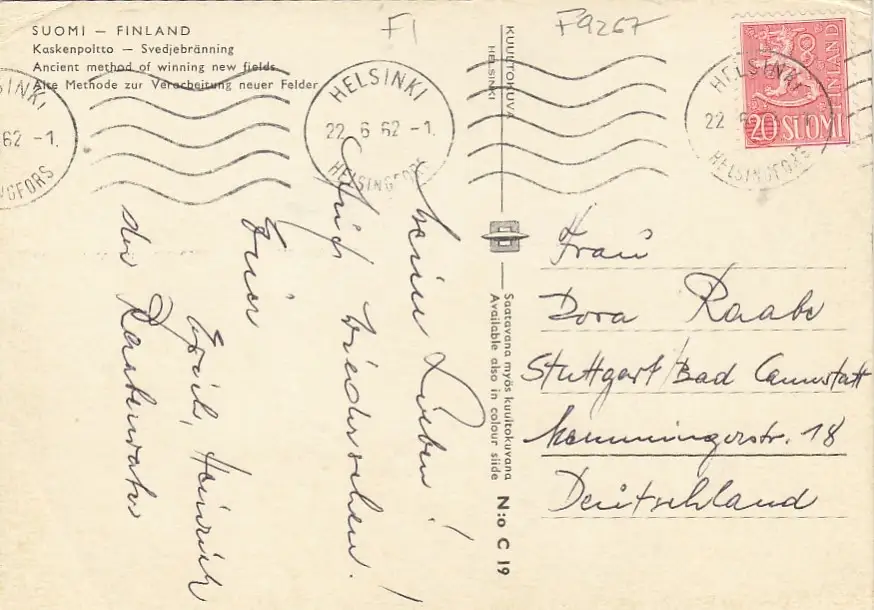 SUOMI — FINLAND
Kaskenpoltto — Svedjebränning
Ancient method of winning new fields
Alte Methode zur Verarbeitung neuer Felder
FI
F9267
HELSINKI
22 6 62 -1.
HELSINGFORS
62 -1.
HELSINKI
22
HELSINGFORS
FINLAND
20 SUOMI
KUULTOKUVA
HELSINKI
Saatavana myös kuultokuvana
Available also in colour slide
N:o C 19
meine Lieben!
Auf Wiedersehen!
Euer
Erich, Heinrich
der
Frau
Dora Raabe
Stuttgart/Bad Cannstatt
18
Deutschland